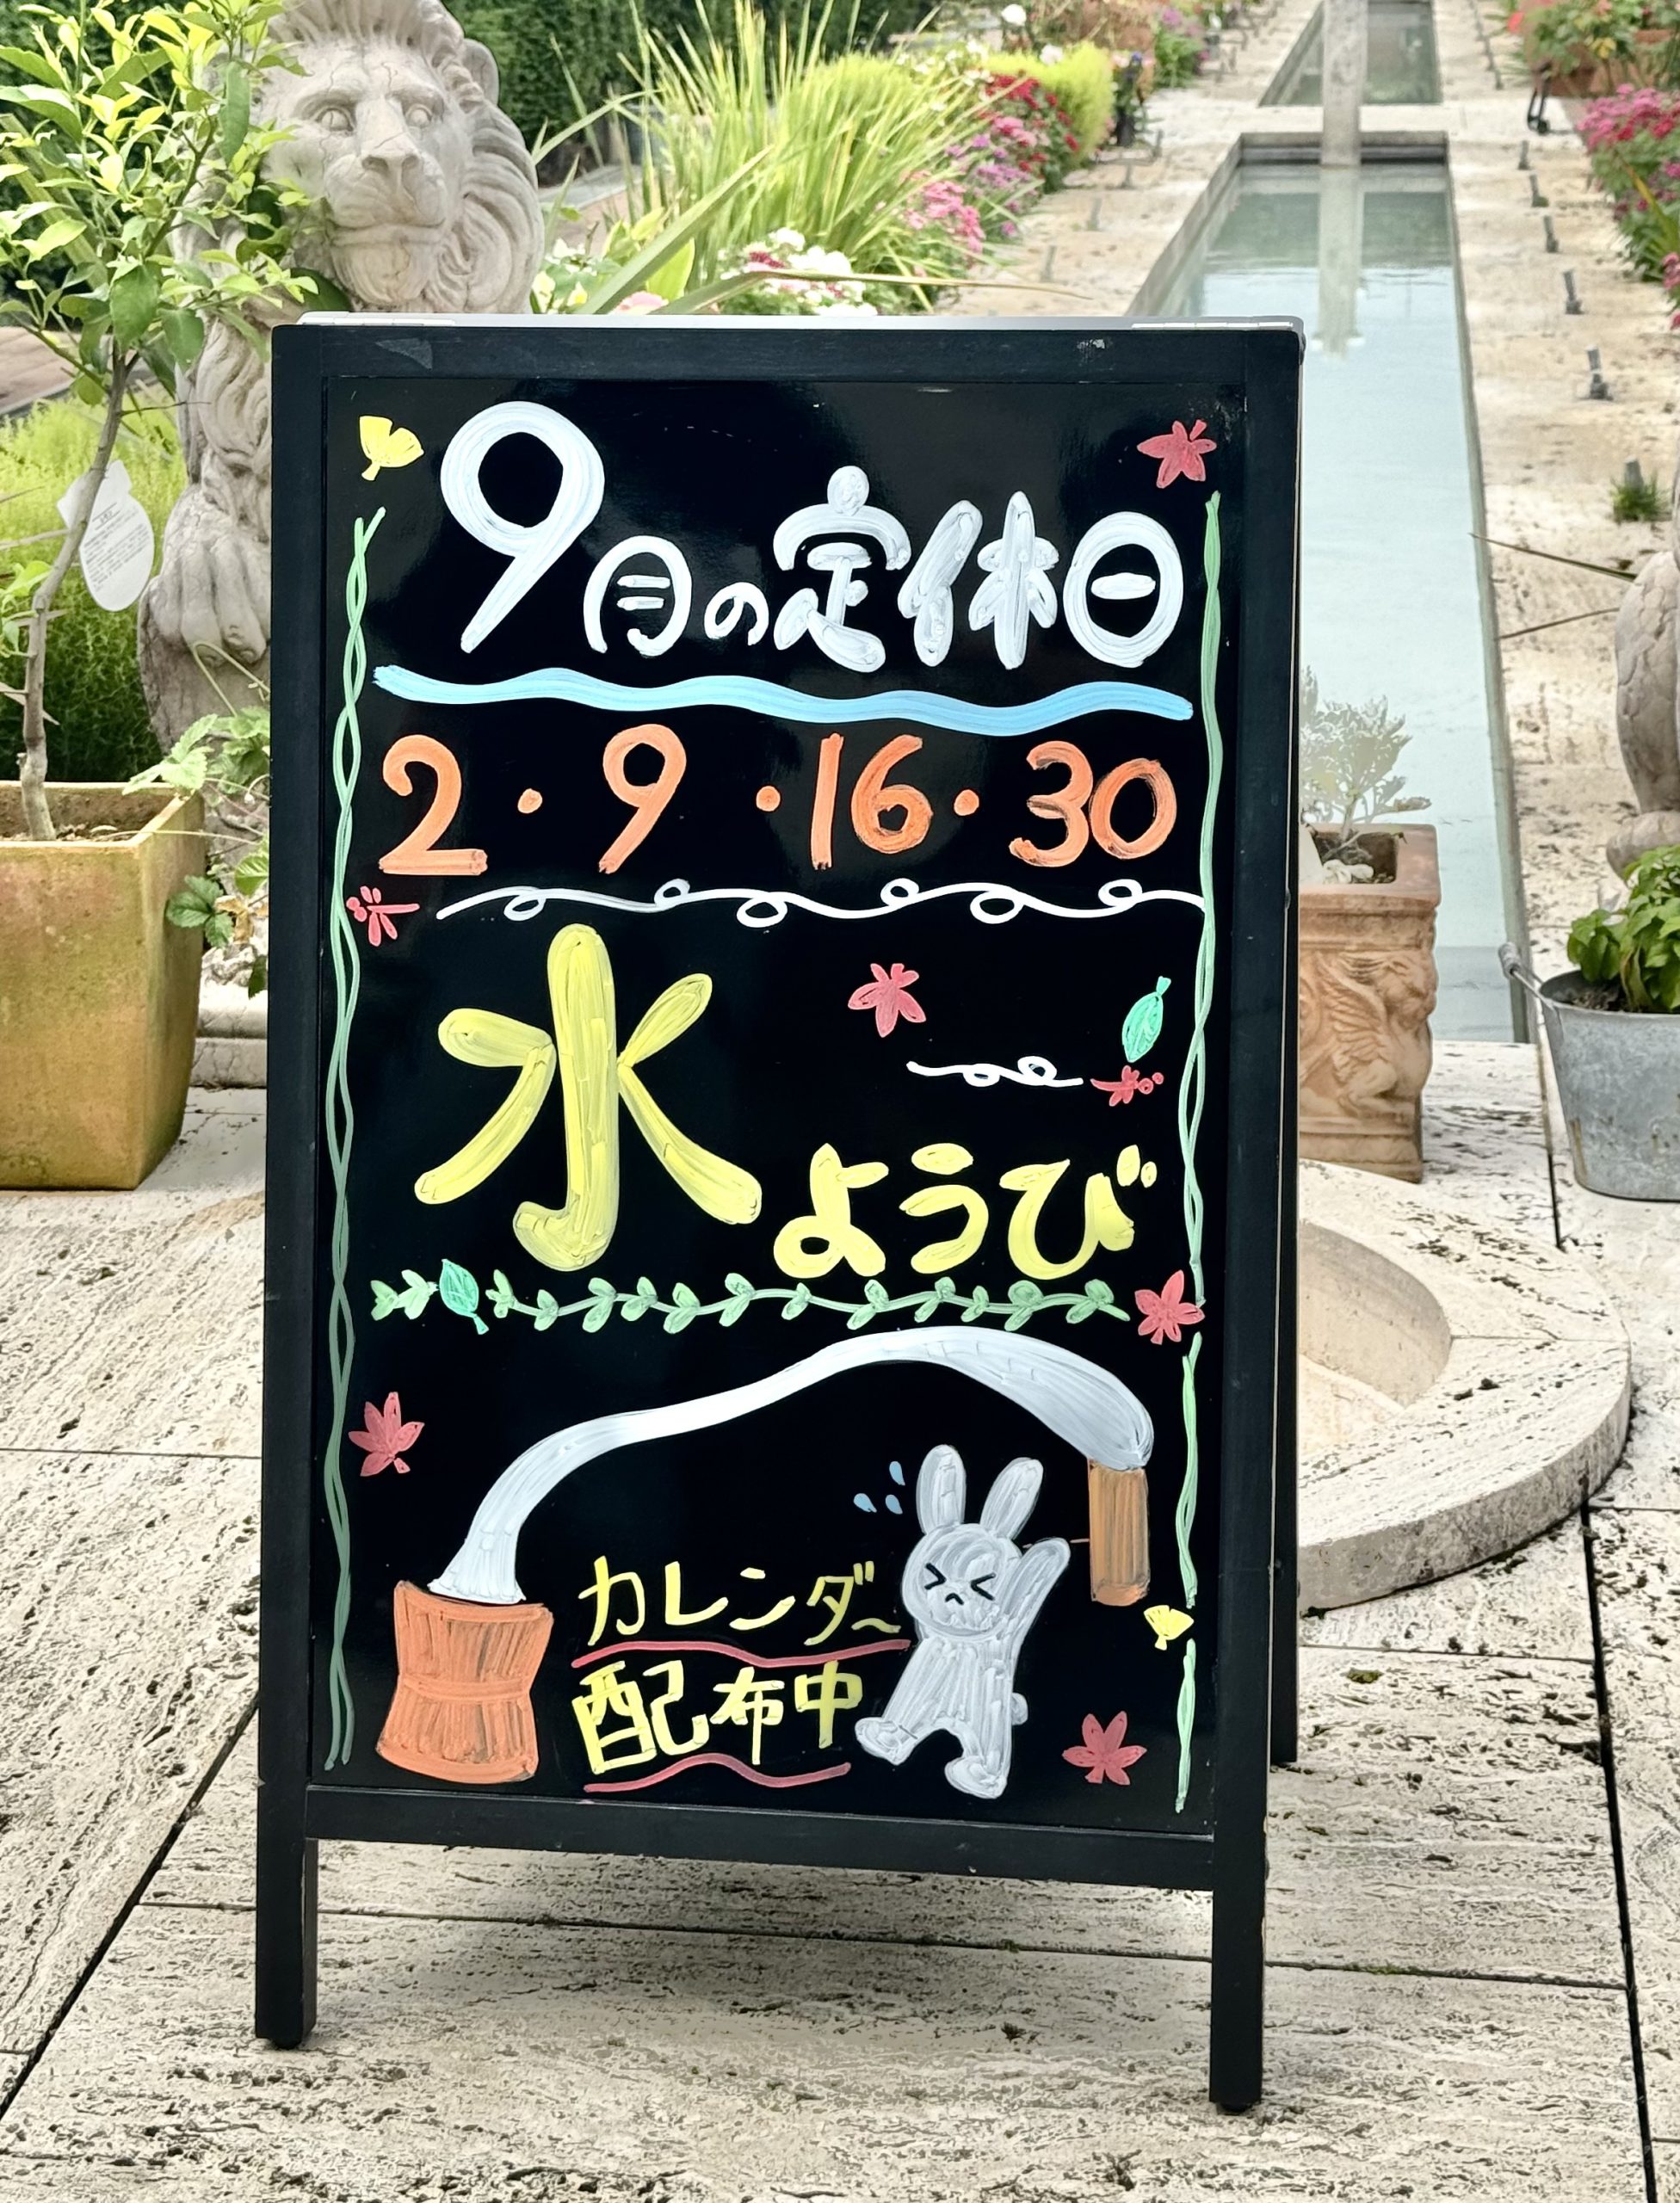 9月の定休日
2・9・16・30
水ようび
カレンダー
配布中